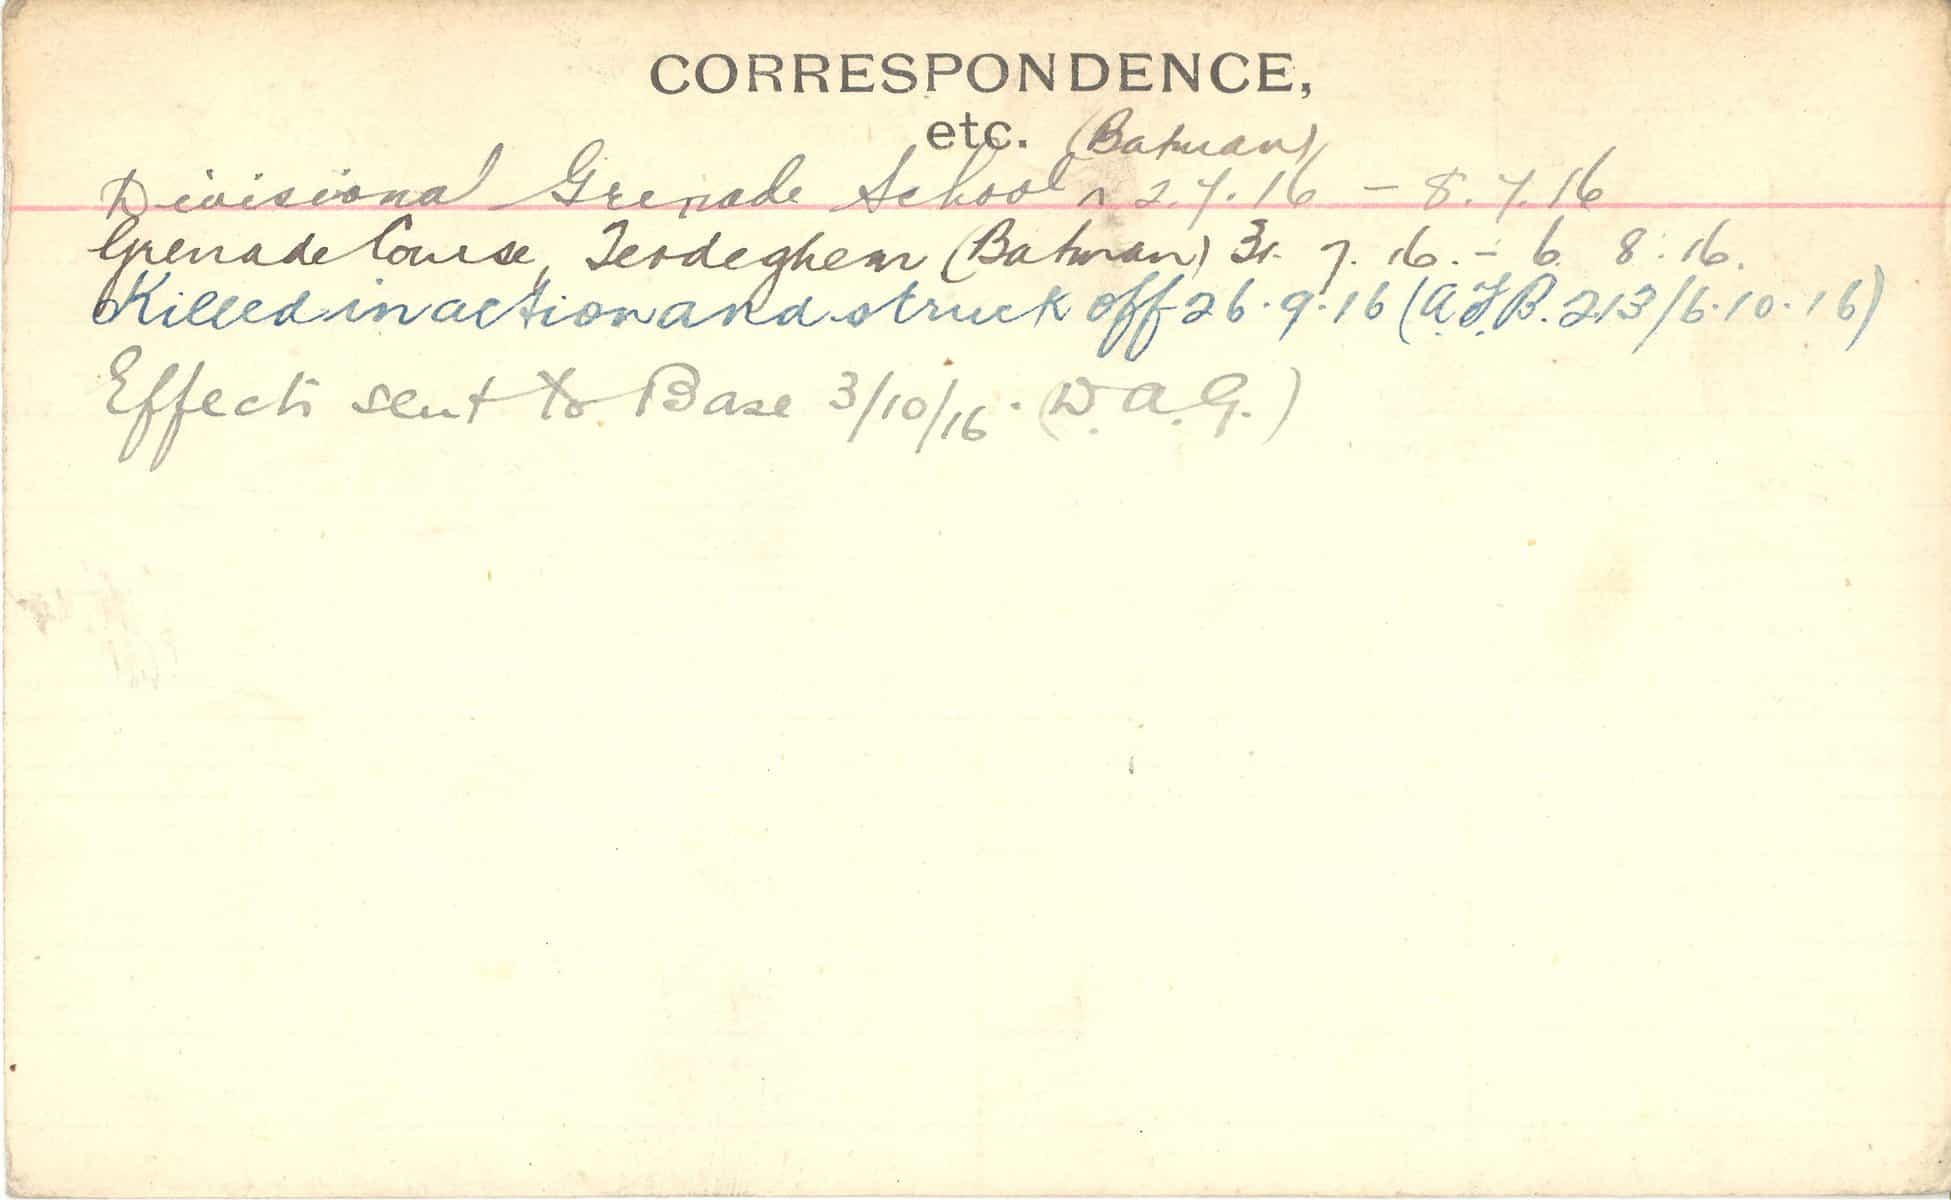 CORRESPONDENCE,
etc. (Batman)
Divisional Grenade School ^ 2.7.16 – 8.7.16
Grenade Course, Terdeghem (Batman) 31. 7. 16. – 6. 8. 16.
Killed in action and struck off 26.9.16 (A.F.B. 213/6.10.16)
Effects sent to Base 3/10/16. (D.A.G.)